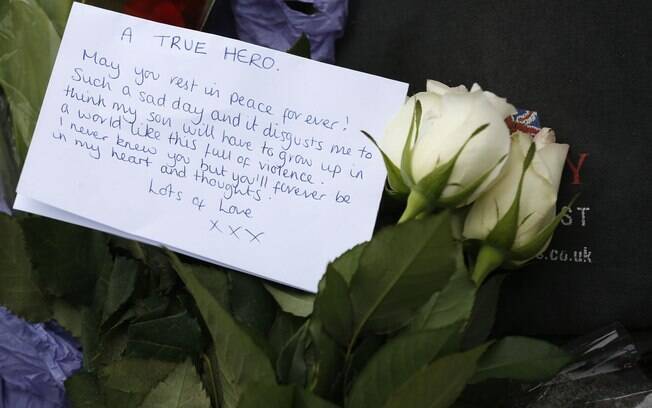 A TRUE HERO.
May you rest in peace for ever!
Such a sad day and it disgusts me to
think my son will have to grow up in
a world like this full of violence.
I never knew you but you'll forever be
in my heart and thoughts.
Lots of Love
x x x
Y
ST
s.co.uk